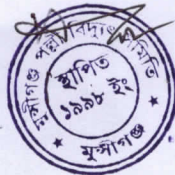 মুন্সীগঞ্জ পল্লী বিদ্যুৎ সমিতি
স্থাপিত
১৯৯৮ ইং
* মুন্সীগঞ্জ *